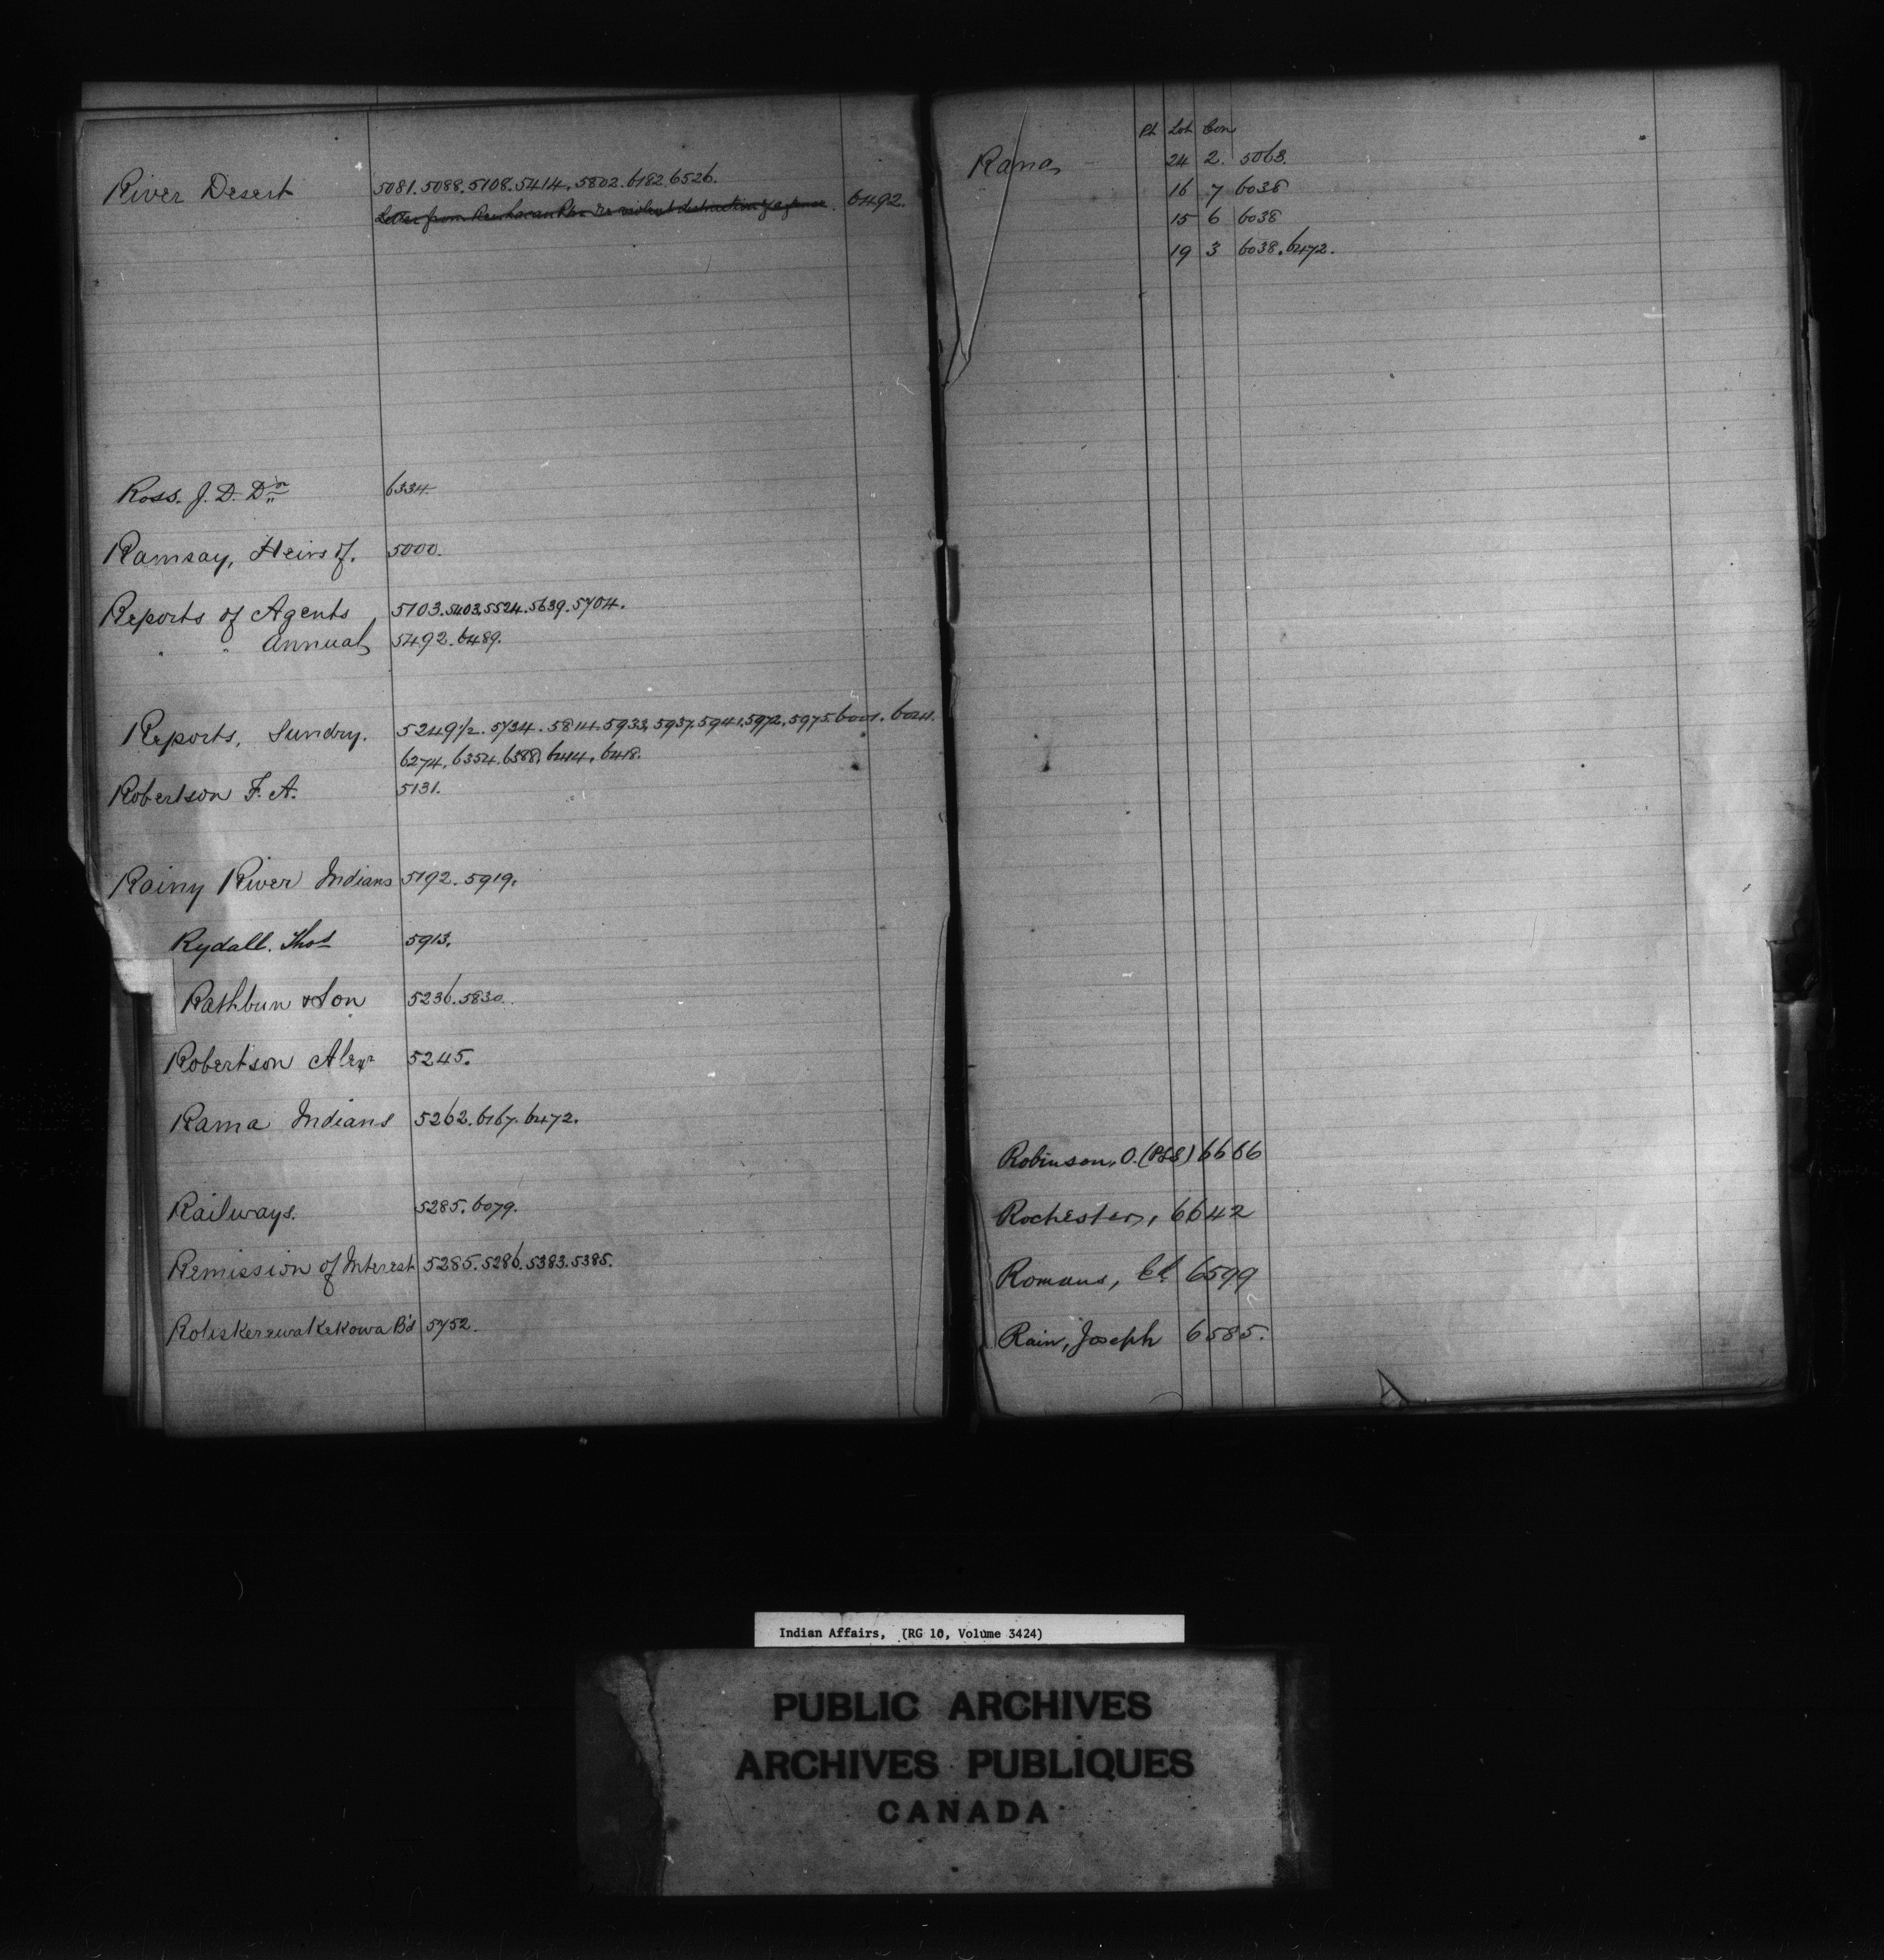 River Desert 5081. 5088. 5108. 5414. 5802. 6182. 6526.
Letter from re violent destruction of a fence. 6492.
Ross. J. D. Dr 6334.
Ramsay, Heirs of. 5000.
Reports of Agents 5103. 5403. 5524. 5639. 5704.
" " Annual 5492. 6489.
Reports, Sundry. 5249½. 5734. 5814. 5933. 5937. 5941. 5972. 5975. 6001. 6024.
6274. 6354. 6414. 6418.
Robertson F. A. 5131.
Rainy River Indians 5192. 5919.
Rydall. Thos 5913.
Rathbun & Son 5236. 5830.
Robertson Alexr 5245.
Rama Indians 5262. 6167. 6472.
Railways. 5285. 6079.
Remission of Interest 5285. 5286. 5383. 5385.
5752.
Pt Lot Con
Rama 24 2. 5063.
16 7 6038
15 6 6038
19 3 6038. 6472.
Robinson, O. (PLS) 6666
Rochester, 6642
Romans, 6599
Rain, Joseph 6585.
Indian Affairs, (RG 10, Volume 3424)
PUBLIC ARCHIVES
ARCHIVES PUBLIQUES
CANADA